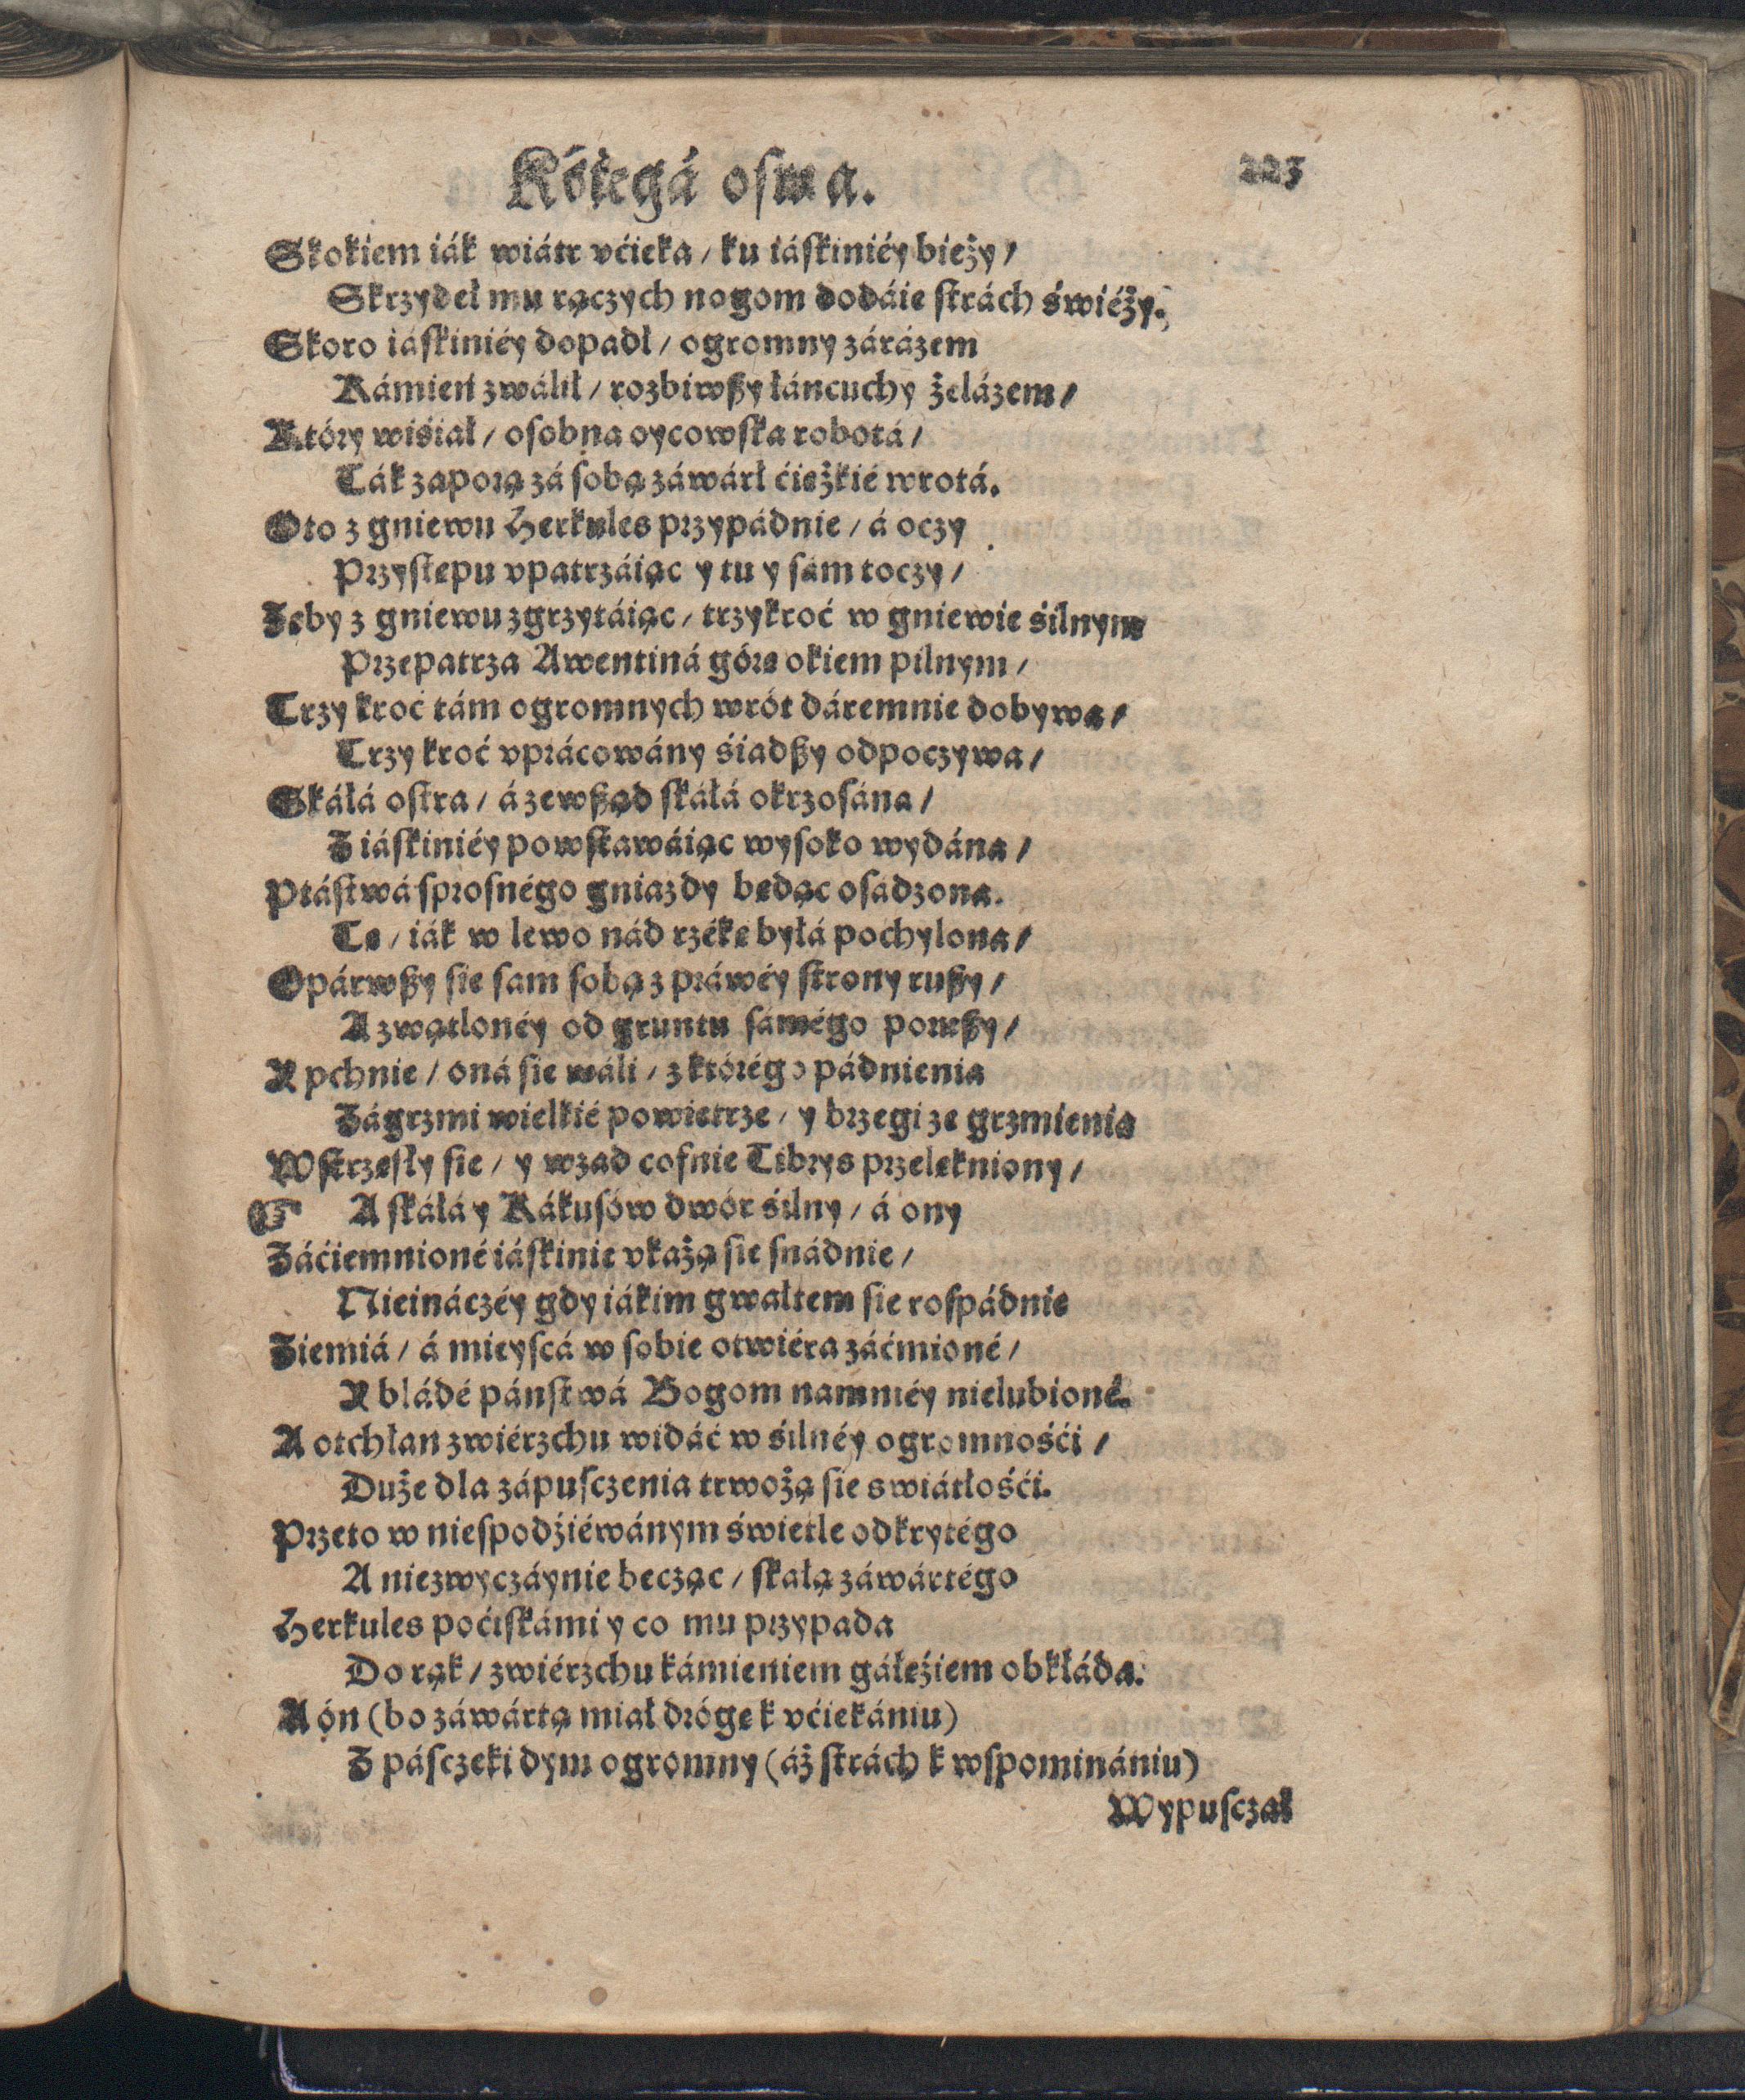 Kśięgá osma. 223
Skokiem iák wiátr vćieka / ku iáskiniéy bieży /
Skrzydeł mu rączych nogom dodáie strách świéży.
Skoro iáskiniéy dopadł / ogromny zárázem
Kámień zwálił / rozbiwszy łáncuchy żelázem /
Który wiśiał / osobna oycowska robotá /
Ták zaporą zá sobą záwárł ćieżkié wrotá.
Oto z gniewu Herkules przypádnie / á oczy
Przystępu vpatrzáiąc y tu y sám toczy /
Zęby z gniewu zgrzytáiąc / trzykroć w gniewie śilnym
Przepatrza Awentiná górę okiem pilnym /
Trzy kroć tám ogromnych wrót dáremnie dobywa /
Trzy kroć vprácowány śiadszy odpoczywa /
Skáłá ostra / á zewsząd skáłá okrzosána /
Z iáskiniéy powstawáiąc wysoko wydána /
Ptástwá sprosnégo gniazdy będąc osádzona.
Tę / iák w lewo nád rzékę byłá pochylona /
Opárwszy sie sam sobą z práwéy strony ruszy /
A zwątlonéy od gruntu sámégo poruszy /
Y pchnie / oná sie wáli / z którégo pádnienia
Zágrzmi wielkié powietrze / y brzegi ze grzmienia
Wstrzęsły sie / y wzad cofnie Tibrys przelękniony /
☞ A skáłá y Kákusów dwór śilny / á ony
Záćiemnioné iáskinie vkażą sie snádnie /
Nieináczéy gdy iákim gwałtem sie rospádnie
Ziemiá / á mieyscá w sobie otwiéra záćmioné /
Y bládé pánstwá Bogom namniéy nielubioné.
A otchłan zwiérzchu widáć w śilnéy ogromnośći /
Duże dla zápusczenia trwożą sie swiátłośći.
Przeto w niespodźiéwánym świetle odkrytégo
A niezwyczáynie becząc / skałą záwártégo
Herkules poćiskámi y co mu przypada
Do rąk / zwiérzchu kámieniem gáłęźiem obkłáda.
A ón (bo záwártą miał drógę k vćiekániu)
Z pásczeki dym ogromny (áż strách k wspominániu)
Wypusczał